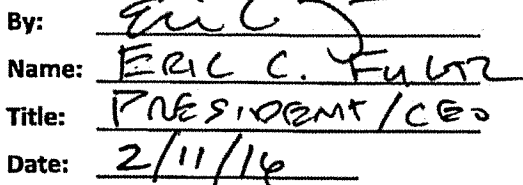 By: Eric C
Name: ERIC C. FULTZ
Title: PRESIDENT/CEO
Date: 2/11/16